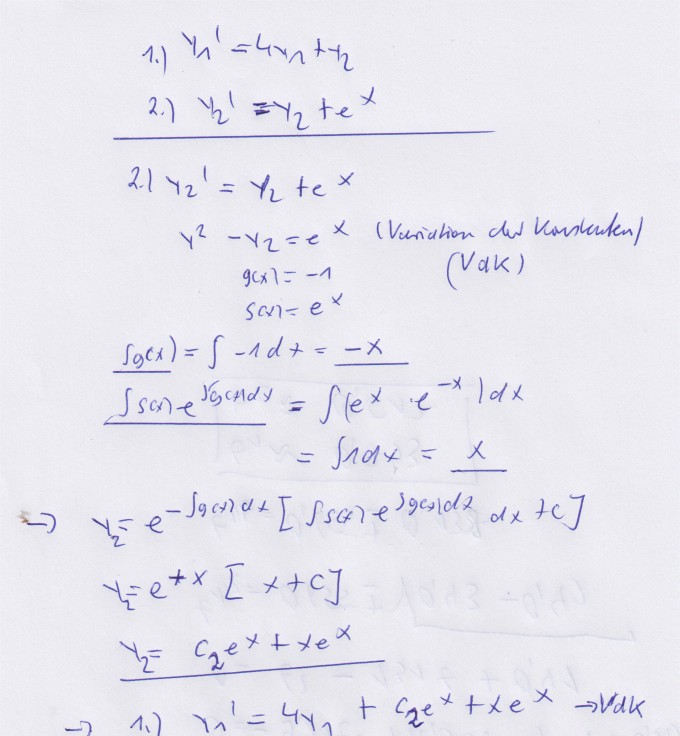 1.) y₁' = 4y₁ + y₂
2.) y₂' = y₂ + e^x
2.) y₂' = y₂ + e^x
y² - y₂ = e^x (Variation der Konstanten)
(VdK)
g(x) = -1
s(x) = e^x
∫g(x) = ∫ -1 dx = -x
∫s(x) e^(∫g(x)dx) = ∫(e^x · e^(-x)) dx
= ∫1dx = x
→ y₂ = e^(-∫g(x)dx) [∫s(x) e^(∫g(x)dx) dx + c]
y₂ = e^(+x) [x + c]
y₂ = c₂e^x + xe^x
→ 1.) y₁' = 4y₁ + c₂e^x + xe^x → VdK